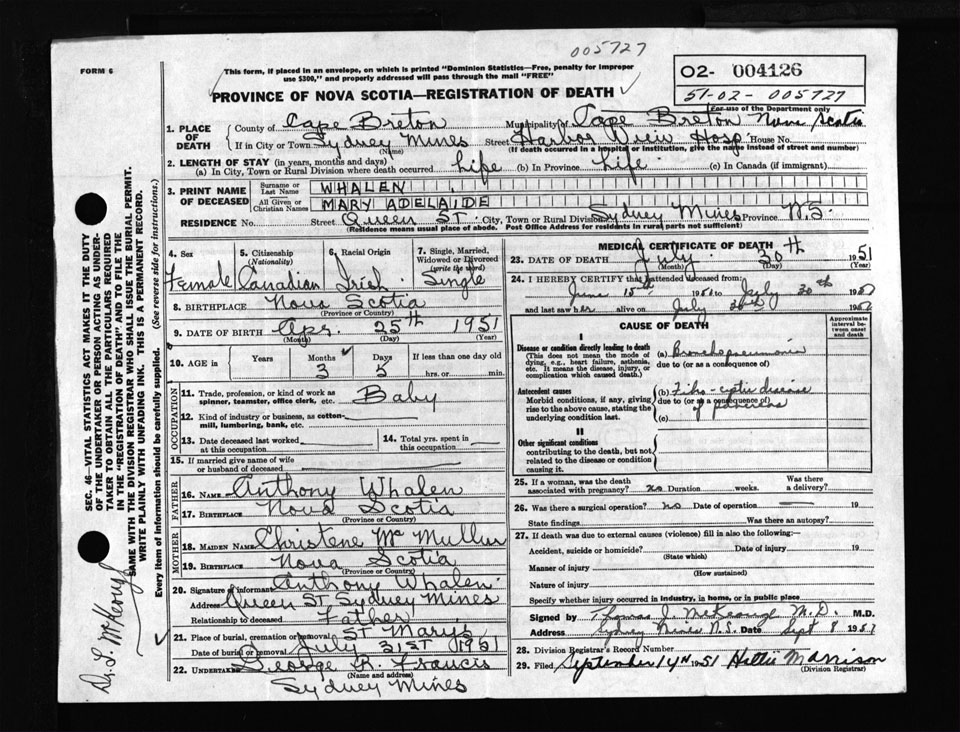 005727
FORM 6
This form, if placed in an envelope, on which is printed "Dominion Statistics—Free, penalty for improper
use $300," and properly addressed will pass through the mail "FREE"
02- 004126
51-02-005727
For use of the Department only
PROVINCE OF NOVA SCOTIA—REGISTRATION OF DEATH
1. PLACE OF DEATH County of Cape Breton Municipality of Cape Breton Nova Scotia
If in City or Town Sydney Mines Street Harbor View Hosp. House No.
(Name) (If death occurred in a hospital or institution, give the name instead of street and number)
2. LENGTH OF STAY (in years, months and days)
(a) In City, Town or Rural Division where death occurred Life (b) In Province Life (c) In Canada (if immigrant)
3. PRINT NAME OF DECEASED Surname or Last Name WHALEN
All Given or Christian Names MARY ADELAIDE
RESIDENCE No. Street Queen St. City, Town or Rural Division Sydney Mines Province N.S.
(Residence means usual place of abode. Post Office Address for residents in rural parts not sufficient)
4. Sex 5. Citizenship (Nationality) 6. Racial Origin 7. Single, Married, Widowed or Divorced (write the word)
Female Canadian Irish Single
8. BIRTHPLACE Nova Scotia
(Province or Country)
9. DATE OF BIRTH Apr. 25th 1951
(Month) (Day) (Year)
10. AGE in Years Months Days If less than one day old
3 5 hrs. or min.
OCCUPATION
11. Trade, profession, or kind of work as spinner, teamster, office clerk, etc. Baby
12. Kind of industry or business, as cotton-mill, lumbering, bank, etc.
13. Date deceased last worked at this occupation 14. Total yrs. spent in this occupation
15. If married give name of wife or husband of deceased
FATHER
16. NAME Anthony Whalen
17. BIRTHPLACE Nova Scotia
(Province or Country)
MOTHER
18. MAIDEN NAME Christene McMullin
19. BIRTHPLACE Nova Scotia
(Province or Country)
20. Signature of informant Anthony Whalen
Address Queen St Sydney Mines
Relationship to deceased Father
21. Place of burial, cremation or removal St Marys
Date of burial or removal July 31st 1951
22. UNDERTAKER George R. Francis
(Name and address)
Sydney Mines
MEDICAL CERTIFICATE OF DEATH
23. DATE OF DEATH July 30th 1951
(Month) (Day) (Year)
24. I HEREBY CERTIFY that I attended deceased from:
June 15th 1951 to July 30th 1951
and last saw her alive on July 1951
CAUSE OF DEATH
Approximate interval between onset and death
I
Disease or condition directly leading to death
(This does not mean the mode of dying, e.g., heart failure, asthenia, etc. It means the disease, injury, or complication which caused death.)
(a) Bronchopneumonia
due to (or as a consequence of)
Antecedent causes
Morbid conditions, if any, giving rise to the above cause, stating the underlying condition last.
(b) Fibro-cystic disease
due to (or as a consequence of)
of pancreas
(c)
II
Other significant conditions
contributing to the death, but not related to the disease or condition causing it.
25. If a woman, was the death associated with pregnancy? no Duration weeks. Was there a delivery?
26. Was there a surgical operation? no Date of operation 19
State findings Was there an autopsy?
27. If death was due to external causes (violence) fill in also the following:—
Accident, suicide or homicide? Date of injury 19
(State which)
Manner of injury
(How sustained)
Nature of injury
Specify whether injury occurred in industry, in home, or in public place
Signed by Thomas J. McKeough M.D. M.D.
Address Sydney Mines N.S. Date Sept 8 1951
28. Division Registrar's Record Number
29. Filed September 14th 1951 Hattie Morrison
(Division Registrar)
SEC. 46—VITAL STATISTICS ACT MAKES IT THE DUTY
OF THE UNDERTAKER OR PERSON ACTING AS UNDER-
TAKER TO OBTAIN ALL THE PARTICULARS REQUIRED
IN THE "REGISTRATION OF DEATH" AND TO FILE THE
SAME WITH THE DIVISION REGISTRAR WHO SHALL ISSUE THE BURIAL PERMIT.
WRITE PLAINLY WITH UNFADING INK. THIS IS A PERMANENT RECORD.
Every item of information should be carefully supplied. (See reverse side for instructions.)